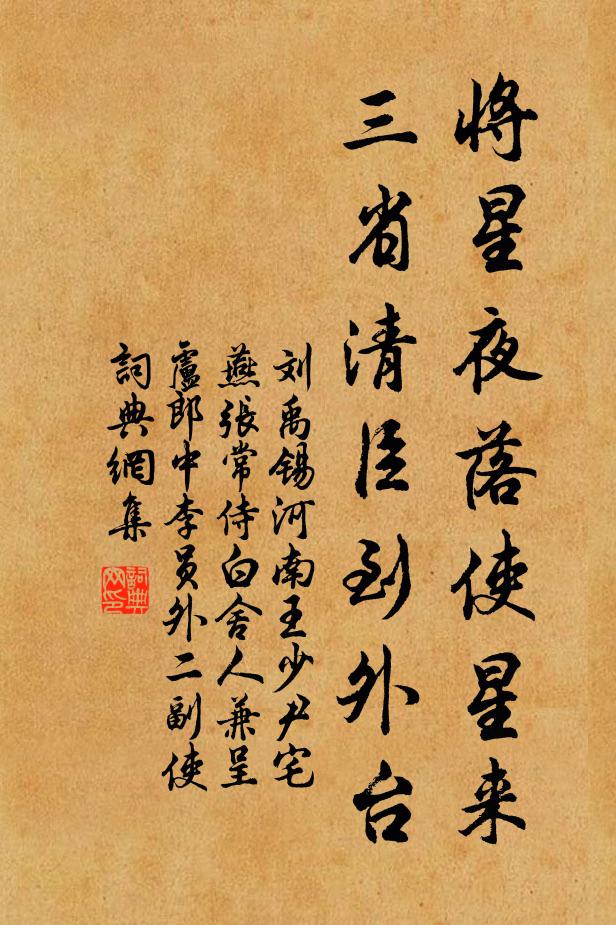 将星夜落使星来
三省清臣到外台
刘禹锡河南王少尹宅
燕张常侍白舍人兼呈
盧郎中李员外二副使
詞典網集
詞典
网印